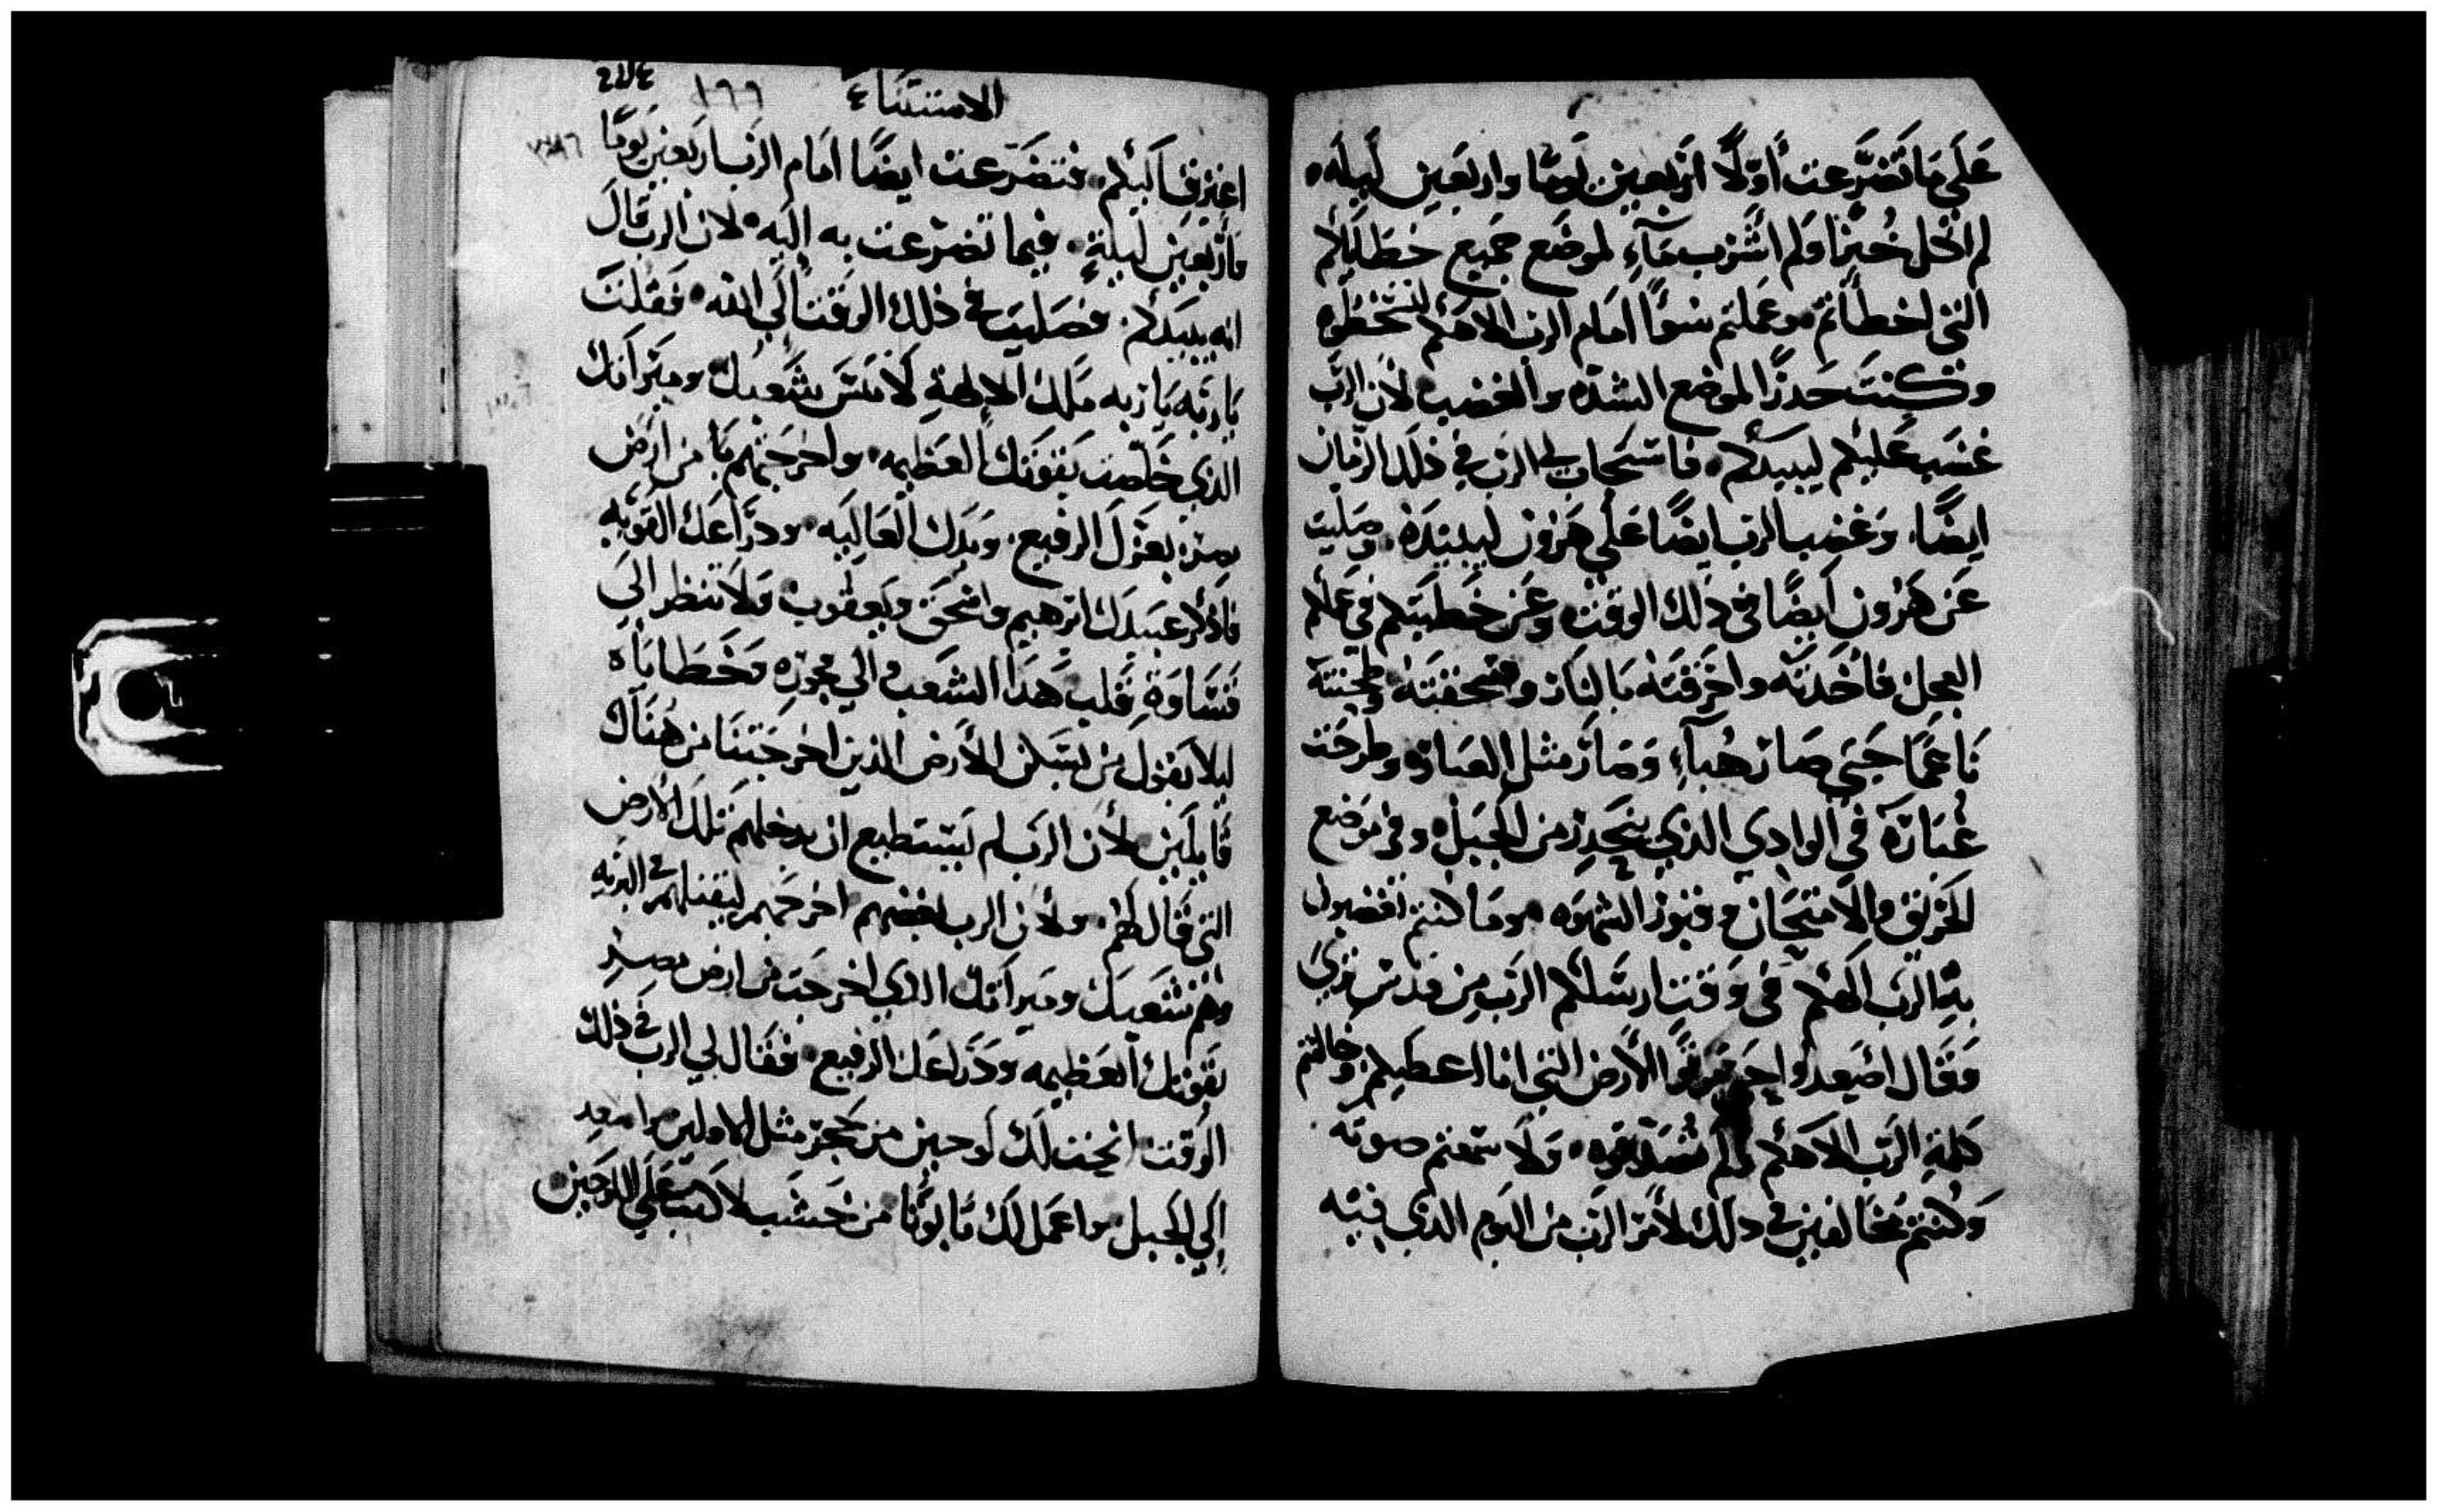 عَلَى مَا تَضَرَّعت أَوّلًا اَرْبعين يَومًا واربَعين لَيلَه
لم اكل خُبزًا ولم اشرب مَآءٍ لموضَع جميع خطَاياكم
التي اخطأتم وعَملتم سُوًا امَام الرب الاهكم لتسخطوه
وكنتَ حَذرًا لموضع الشدّه والغضب لان الرَّب
غضَب عَليكم ليبيدكم فاستجاب لي الرب في ذلك الزمان
ايضًا وَغضب الرب ايضًا عَلى هَرون ليبيدَه وصَليت
عَن هَرُون ايضًا في ذلك الوقت وعَن خَطيتكم في عَملكم
العجل فاخَدتَه واحَرقتَه بَالنار وسحَقتَه وطحنته
نَاعمًا حَتى صَار هُبآءٍ وَصَارَ مثل الغبار وطرحَت
غُبَارَه في الوادي الذي ينحَدِر من الجبَل وفي مَوضع
الحَريق والامتحَان وقبور الشهوَه ومَا كنتم تغضبون
بهَا الرَب الَهكم في وَقت ارسَلكم الرَب من قدس برني
وَقَال اصَعدوا وَرثوا الأرض التي انا اعطيكم وخالفتم
كلمة الرَب الاهكم ولم تُصَدقوه وَلا سَمعتم صوته
وَكُنتم مُخَالفين في ذلك لأمَر الرَب من اليَوم الذي فيه
الاستثناء ١٦٦
اعترف اَليكم فتضَرّعت ايضًا امَام الرَب اربَعين يَومًا
وَأربَعين لَيلةٍ فيما تضرّعت به اليَه لان الرب قالَ
انه يبيدكم فصَليت في ذلك الوقت الي الله فقلتَ
يَا رَبَه يَا رَبه مَلك الالهة لَا تنسَ شعبك وميرَاثك
الذي خَلّصت بَقوتك العَظيمه واخرَجَتهم بَا من اَرض
مصر بعَزك الرفيع وَيدك العَاليَه ودرَاعَك القوَيه
فَاذكر عَبيدَك ابرَهيم واسحَق ويَعقوب وَلا تنظر الي
قسَاوَةِ قَلب هَذا الشعَب والي فجورَه وَخَطاياه
ليلا يَقول من يسَكن الأرض الذين اخرجَتنَا من هُنَاك
قَايلين لأن الرَب لم يَستطيع ان يدخلهم تلك الارض
التي قَال لهم ولأن الرب ابغضهم اخرَجَهم ليقتلهم في البَريه
وهُم شَعبك وميرَاثك الذي اخرجَت من ارض مصر
بقوتك العَظيمه ودَراعَك الرفيع فقَال لي الرب في ذلك
الوَقت انحت لك لَوحين من حَجر مثل الاولين واصعد
إلَي الجَبل واعمَل لَك تَابوتًا من خَشَب لاكتب عَلي اللوحَين